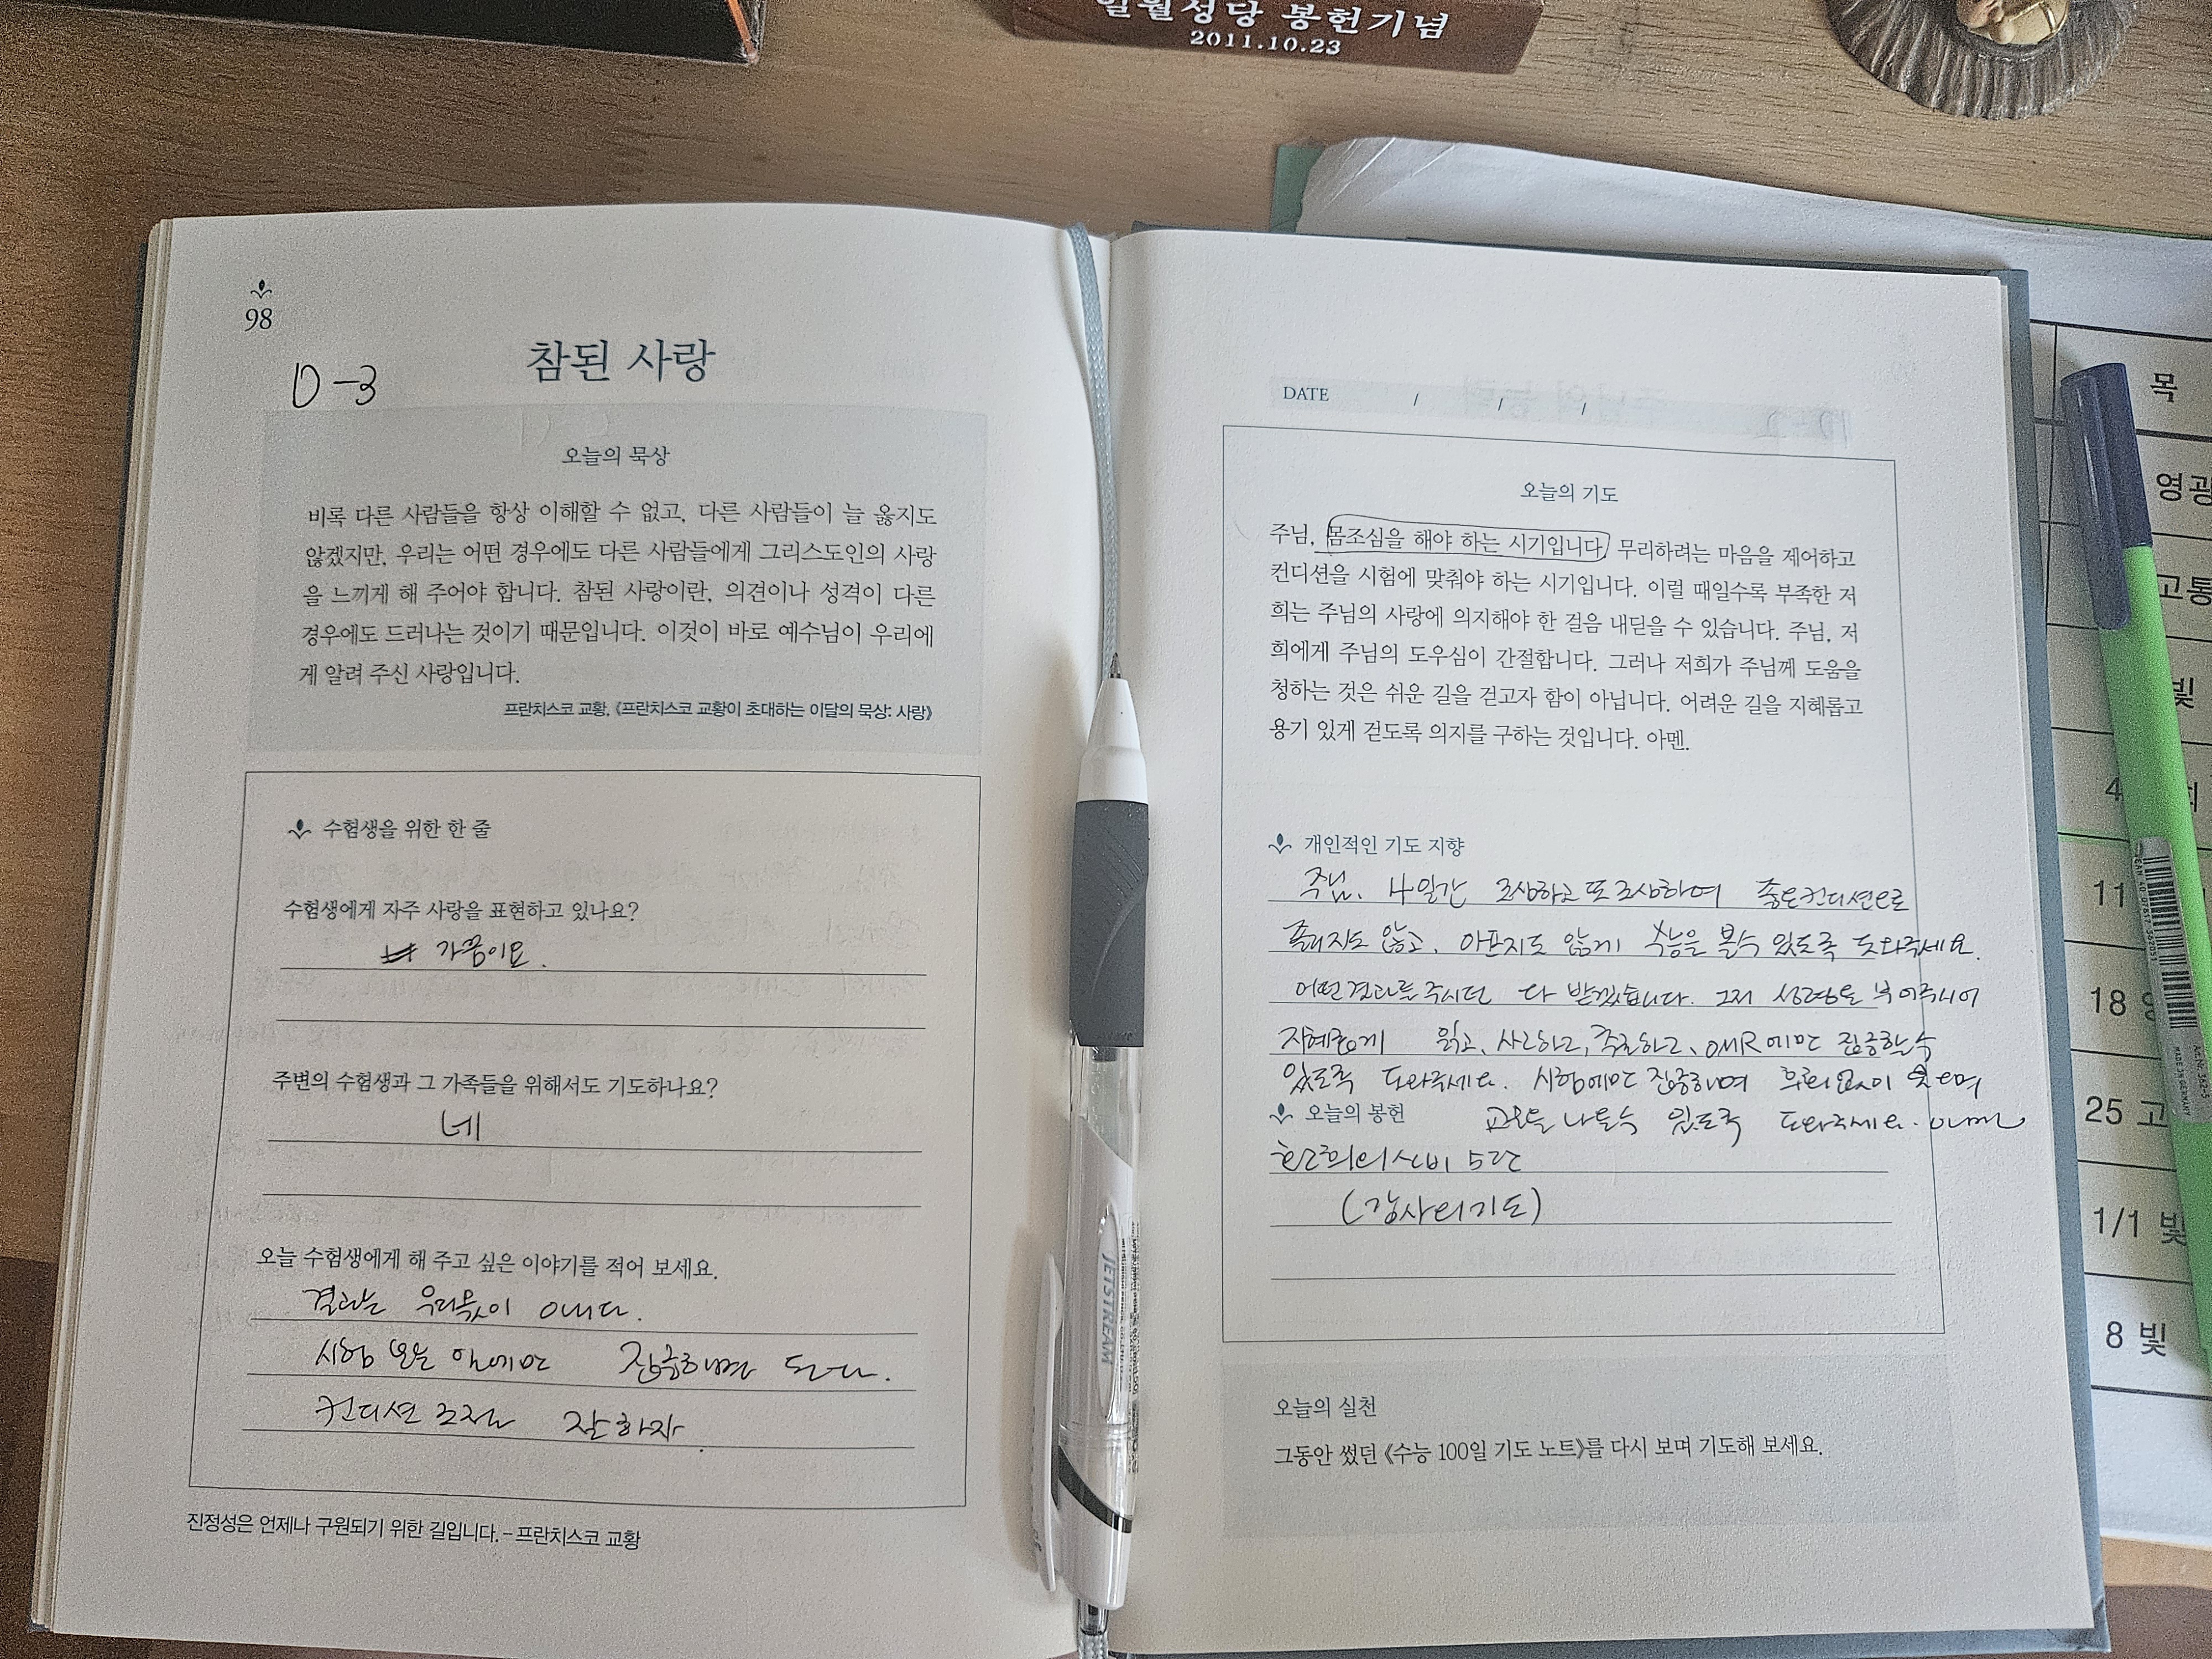 일월성당 봉헌기념
2011.10.23
98
D-3
참된 사랑
오늘의 묵상
비록 다른 사람들을 항상 이해할 수 없고, 다른 사람들이 늘 옳지도
않겠지만, 우리는 어떤 경우에도 다른 사람들에게 그리스도인의 사랑
을 느끼게 해 주어야 합니다. 참된 사랑이란, 의견이나 성격이 다른
경우에도 드러나는 것이기 때문입니다. 이것이 바로 예수님이 우리에
게 알려 주신 사랑입니다.
프란치스코 교황, 《프란치스코 교황이 초대하는 이달의 묵상: 사랑》
수험생을 위한 한 줄
수험생에게 자주 사랑을 표현하고 있나요?
가끔이요.
주변의 수험생과 그 가족들을 위해서도 기도하나요?
네
오늘 수험생에게 해 주고 싶은 이야기를 적어 보세요.
결과는 우리몫이 아니다.
시험 보는 일에만 집중하면 된다.
컨디션 조절 잘 하자.
진정성은 언제나 구원되기 위한 길입니다. – 프란치스코 교황
DATE / / /
오늘의 기도
주님, 몸조심을 해야 하는 시기입니다. 무리하려는 마음을 제어하고
컨디션을 시험에 맞춰야 하는 시기입니다. 이럴 때일수록 부족한 저
희는 주님의 사랑에 의지해야 한 걸음 내딛을 수 있습니다. 주님, 저
희에게 주님의 도우심이 간절합니다. 그러나 저희가 주님께 도움을
청하는 것은 쉬운 길을 걷고자 함이 아닙니다. 어려운 길을 지혜롭고
용기 있게 걷도록 의지를 구하는 것입니다. 아멘.
개인적인 기도 지향
주님. 4일간 조심하고 또 조심하여 좋은컨디션으로
졸리지도 않고, 아프지도 않게 수능을 볼수 있도록 도와주세요.
어떤결과를 주시던 다 받겠습니다. 그저 성령을 부어주시어
지혜롭게 읽고, 사고하고, 추론하고, OMR에만 집중할수
있도록 도와주세요. 시험에만 집중하며 후회없이 웃으며
교문을 나올수 있도록 도와주세요. 아멘
오늘의 봉헌
환희의신비 5단
(감사의기도)
오늘의 실천
그동안 썼던 《수능 100일 기도 노트》를 다시 보며 기도해 보세요.
JETSTREAM
목
영광
고통
빛
4
11
18
25 고
1/1 빛
8 빛